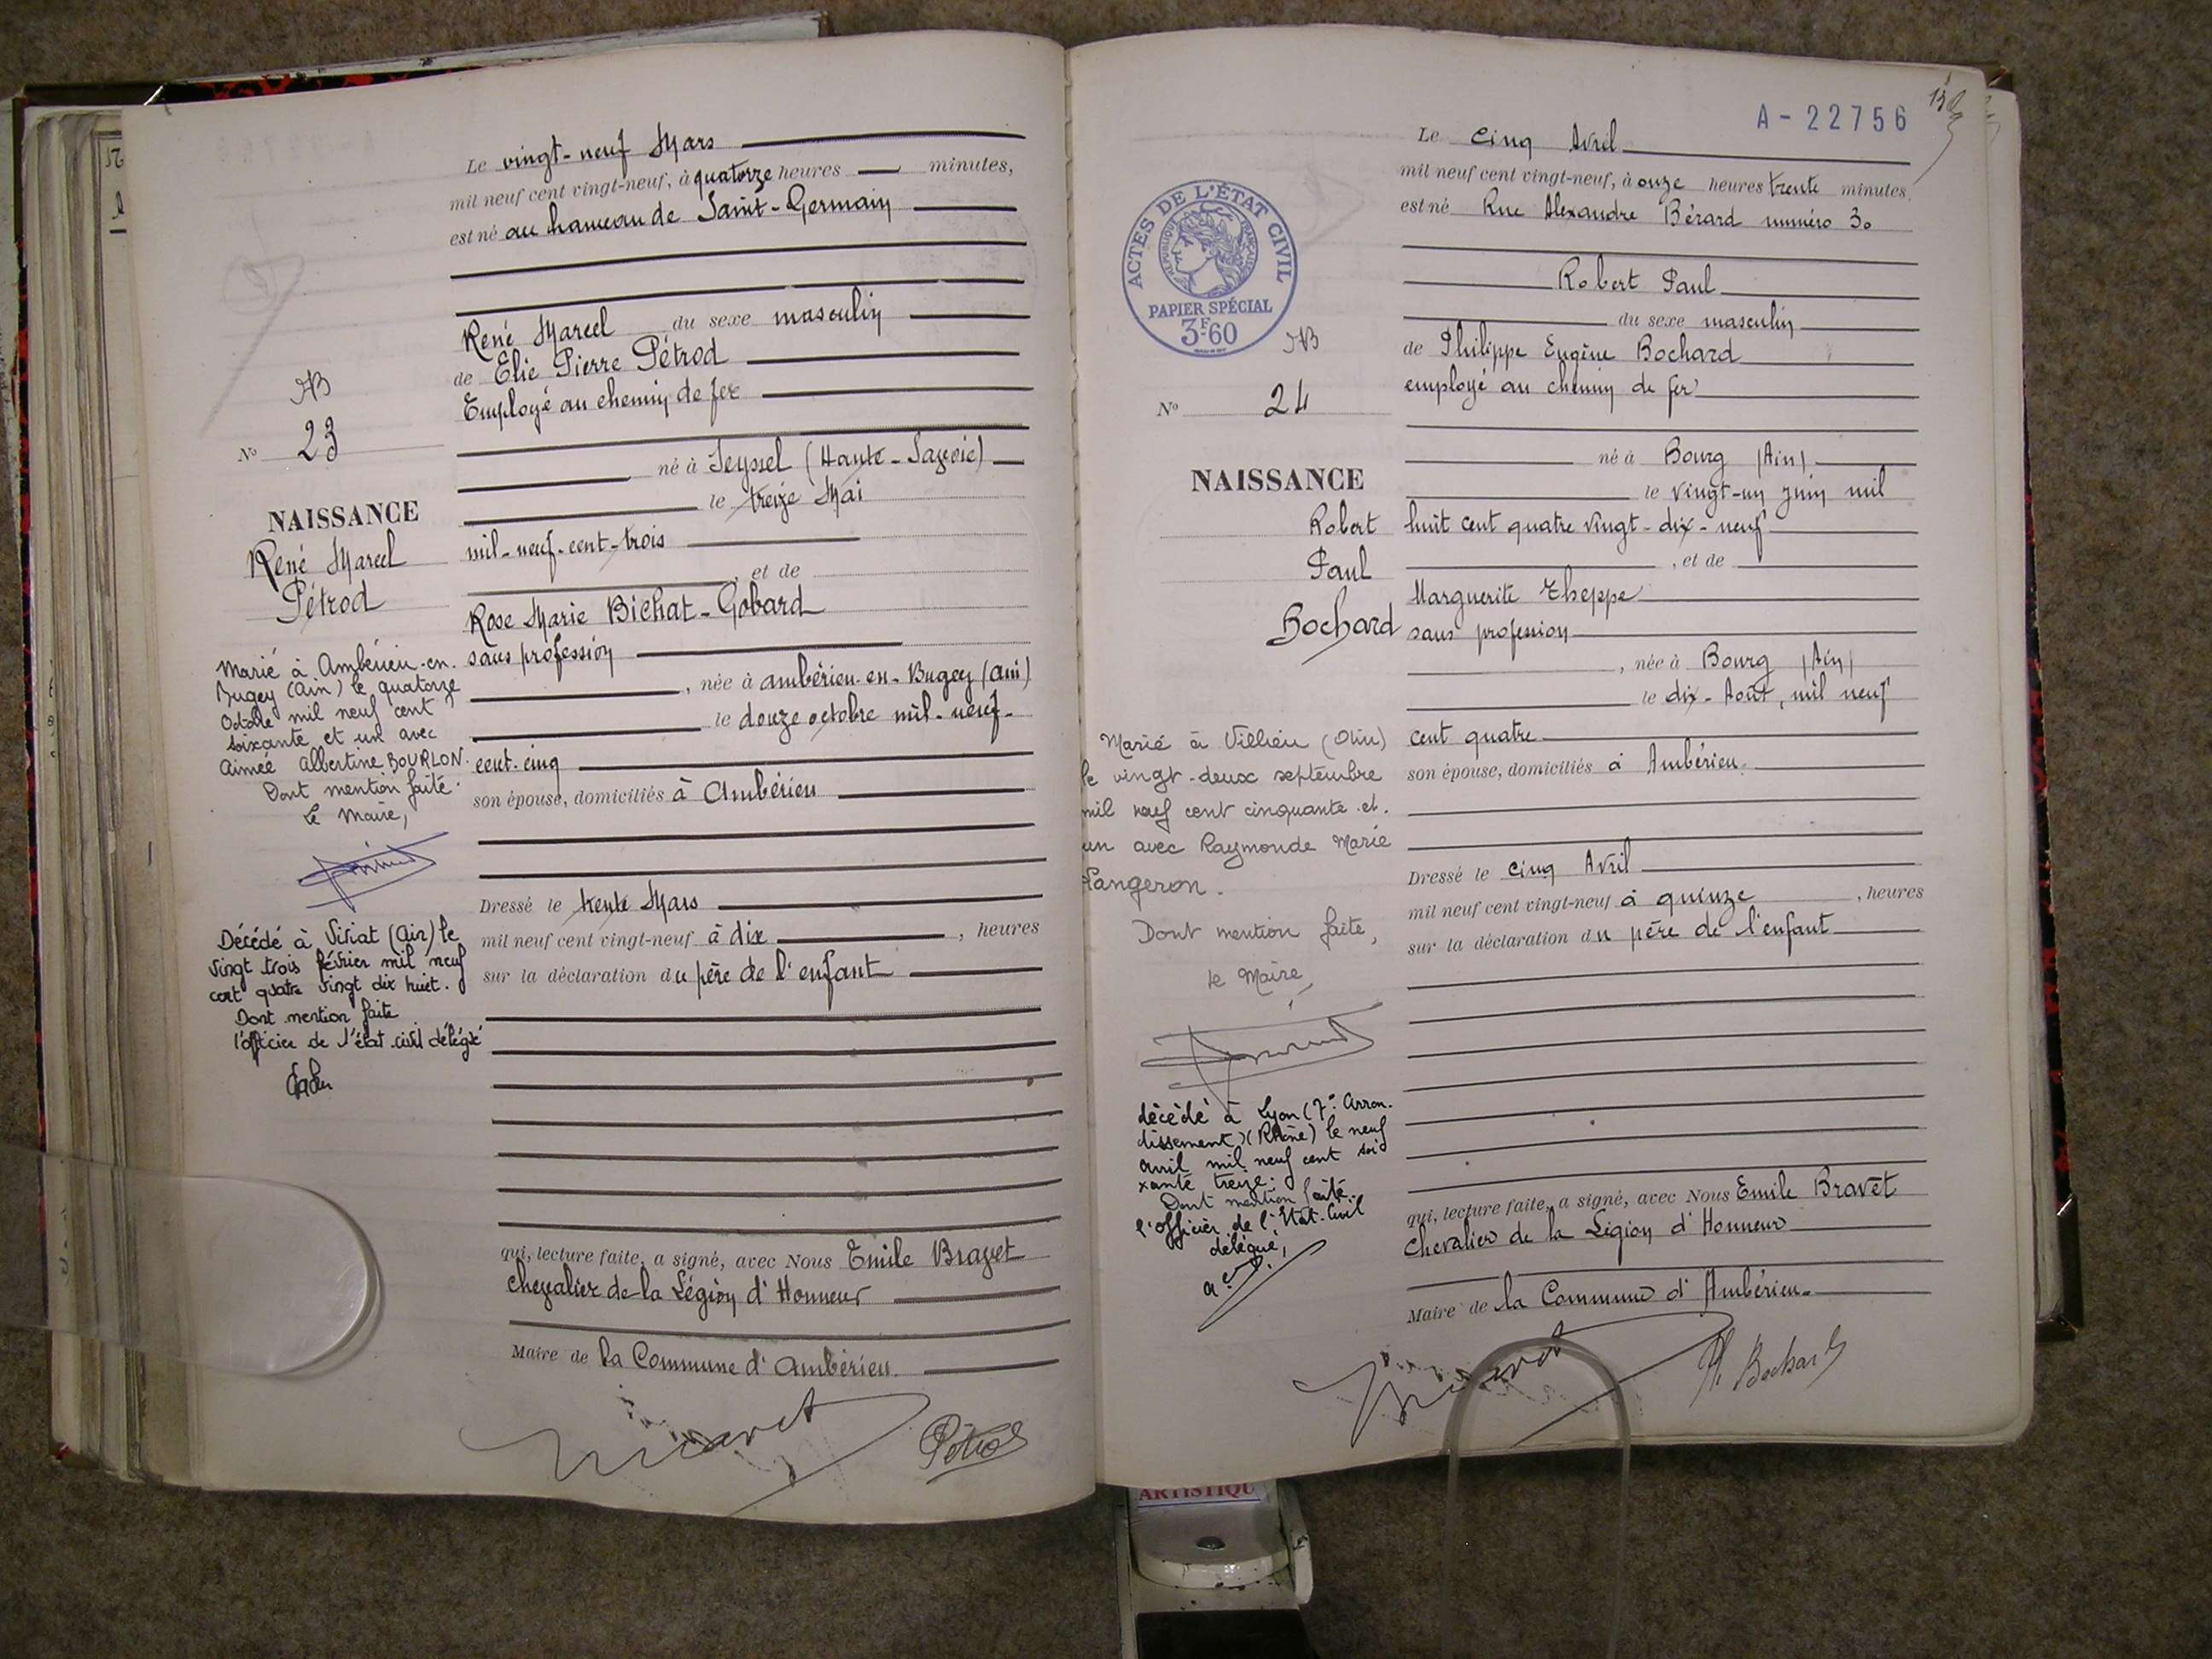 Le vingt-neuf Mars
mil neuf cent vingt-neuf, à quatorze heures minutes,
est né au hameau de Saint-Germain
René Marcel du sexe masculin
de Elie Pierre Pétrod
Employé au chemin de fer
né à Seyssel (Haute-Savoie)
le treize Mai
mil-neuf-cent-trois
, et de
Rose Marie Bichat-Gobard
sans profession
, née à Ambérieu-en-Bugey (Ain)
le douze octobre mil-neuf-
cent-cinq
son épouse, domiciliés à Ambérieu
Dressé le trente Mars
mil neuf cent vingt-neuf à dix , heures
sur la déclaration du père de l'enfant
qui, lecture faite, a signé, avec Nous Emile Bravet
chevalier de la Légion d'Honneur
Maire de la Commune d'Ambérieu.
Pétrod
No 23
NAISSANCE
René Marcel
Pétrod
Marié à Ambérieu-en-
Bugey (Ain) le quatorze
Octobre mil neuf cent
soixante et un avec
Aimée Albertine BOURLON.
Dont mention faite.
Le Maire,
Décédé à Viriat (Ain) le
vingt trois février mil neuf
cent quatre vingt dix huit.
Dont mention faite
l'officier de l'état-civil délégué
A-22756
Le cinq Avril
mil neuf cent vingt-neuf, à onze heures trente minutes,
est né Rue Alexandre Bérard numéro 30
Robert Paul
du sexe masculin
de Philippe Eugène Bochard
employé au chemin de fer
né à Bourg (Ain)
le vingt-un juin mil
huit cent quatre vingt-dix-neuf
, et de
Marguerite Theppe
sans profession
, née à Bourg (Ain)
le dix-Août, mil neuf
cent quatre
son épouse, domiciliés à Ambérieu.
Dressé le cinq Avril
mil neuf cent vingt-neuf à quinze , heures
sur la déclaration du père de l'enfant
qui, lecture faite, a signé, avec Nous Emile Bravet
Chevalier de la Légion d'Honneur
Maire de la Commune d'Ambérieu.
Bochard
ACTES DE L'ÉTAT CIVIL
RÉPUBLIQUE FRANÇAISE
PAPIER SPÉCIAL
3F60
No 24
NAISSANCE
Robert
Paul
Bochard
Marié à Villieu (Ain)
le vingt-deux septembre
mil neuf cent cinquante et.
un avec Raymonde Marie
Dont mention faite,
le Maire,
décédé à Lyon (7e arron-
dissement) (Rhône) le neuf
avril mil neuf cent soi
xante treize.
Dont mention faite.
l'officier de l'Etat-Civil
délégué,
ARTISTIQU